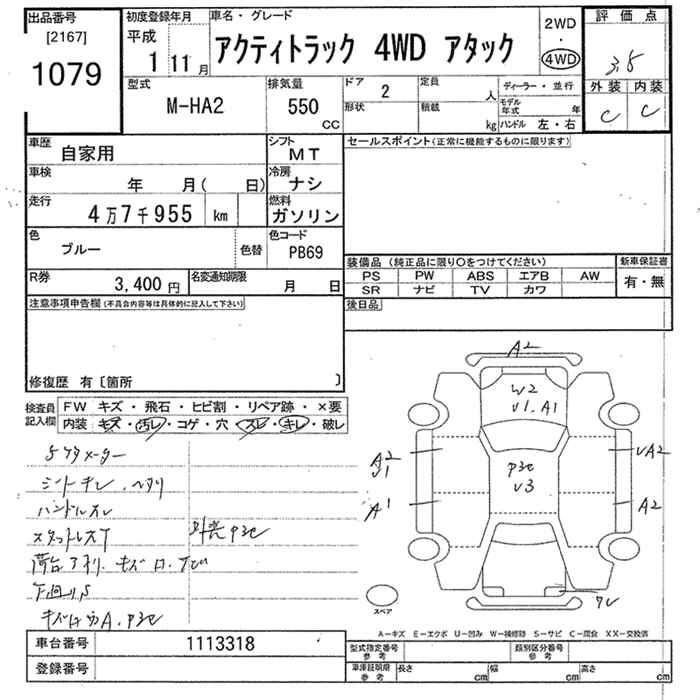 出品番号
[2167]
1079
初度登録年月
平成
1 11 月
車名・グレード
アクティトラック 4WD アタック
2WD
・
4WD
評価点
3.5
外装 内装
C C
型式
M-HA2
排気量
550
CC
ドア
2
形状
定員
人
積載
kg
ディーラー・並行
モデル年式 年
ハンドル 左・右
車歴
自家用
シフト
MT
車検
年 月( 日)
冷房
ナシ
走行
4万7千955 km
燃料
ガソリン
色
ブルー
色替
色コード
PB69
R券
3,400 円
名変通知期限
月 日
セールスポイント(正常に機能するものに限ります)
装備品 (純正品に限り○をつけてください)
PS PW ABS エアB AW
SR ナビ TV カワ
新車保証書
有・無
後日品
注意事項申告欄(不具合内容等は具体的に記入して下さい)
修復歴 有〔箇所 〕
検査員
記入欄
FW キズ・飛石・ヒビ割・リペア跡・×要
内装・キズ・汚レ・コゲ・穴・スレ・キレ・破レ
5ケタメーター
シートキレ.ヘタリ
ハンドルスレ
荷台
下回りS
A2
W2
V1.A1
P3c
V3
A2
A1
A2
スペア
A-キズ E-エクボ U-凹み W-補修跡 S-サビ C-腐食 XX-交換済
車台番号
1113318
登録番号
型式指定番号
参考
類別区分番号
参考
車庫証明用
参考
長さ cm 幅 cm 高さ cm